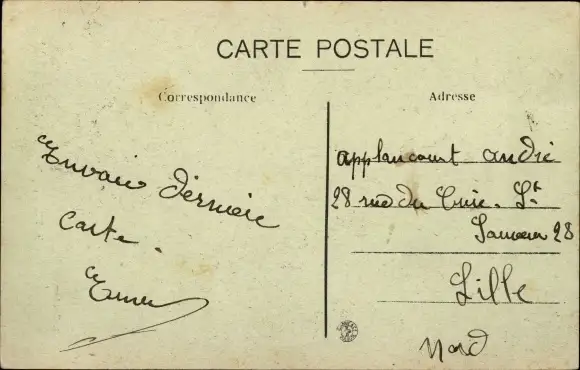 CARTE POSTALE
Correspondance
Adresse
Envoie dernière
carte.
applancourt andré
28 rue du Curé. St
Sauveur 28
Lille
Nord